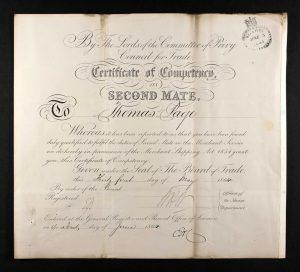 By The Lords of the Committee of Privy
Council for Trade
Certificate of Competency,
as
SECOND MATE.
To Thomas Page
Whereas it has been reported to us that you have been found
duly qualified to fulfil the duties of Second Mate in the Merchant Service
we do hereby in pursuance of the Merchant Shipping Act 1854 grant
you this Certificate of Competency.
Given under the Seal of The Board of Trade
this thirty first day of May
By order of the Board
Registered
of the Marine
Department
Entered at the General Register and Record Office of Seamen
on the day of June